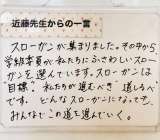 近藤先生からの一言
スローガンが集まりました。その中から
学級委員が私たちにふさわしいスロー
ガンを選んでいます。スローガンは
目標？私たちが進むべき道しるべ
です。どんなスローガンになっても、
みんなでこの道を進んでいく。